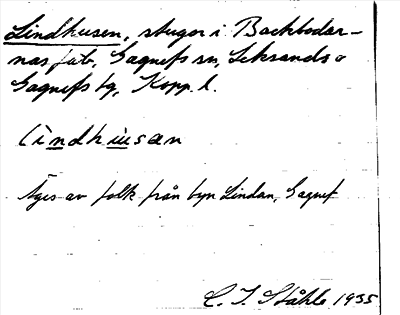 Lindhusen, stugor i Backbodar-
nas fäb., Gagnefs sn, Leksands o
Gagnefs tg, Kopp. l.
lìndhùsan
Äges av folk från byn Lindan, Gagnef
C. I. Ståhle 1935